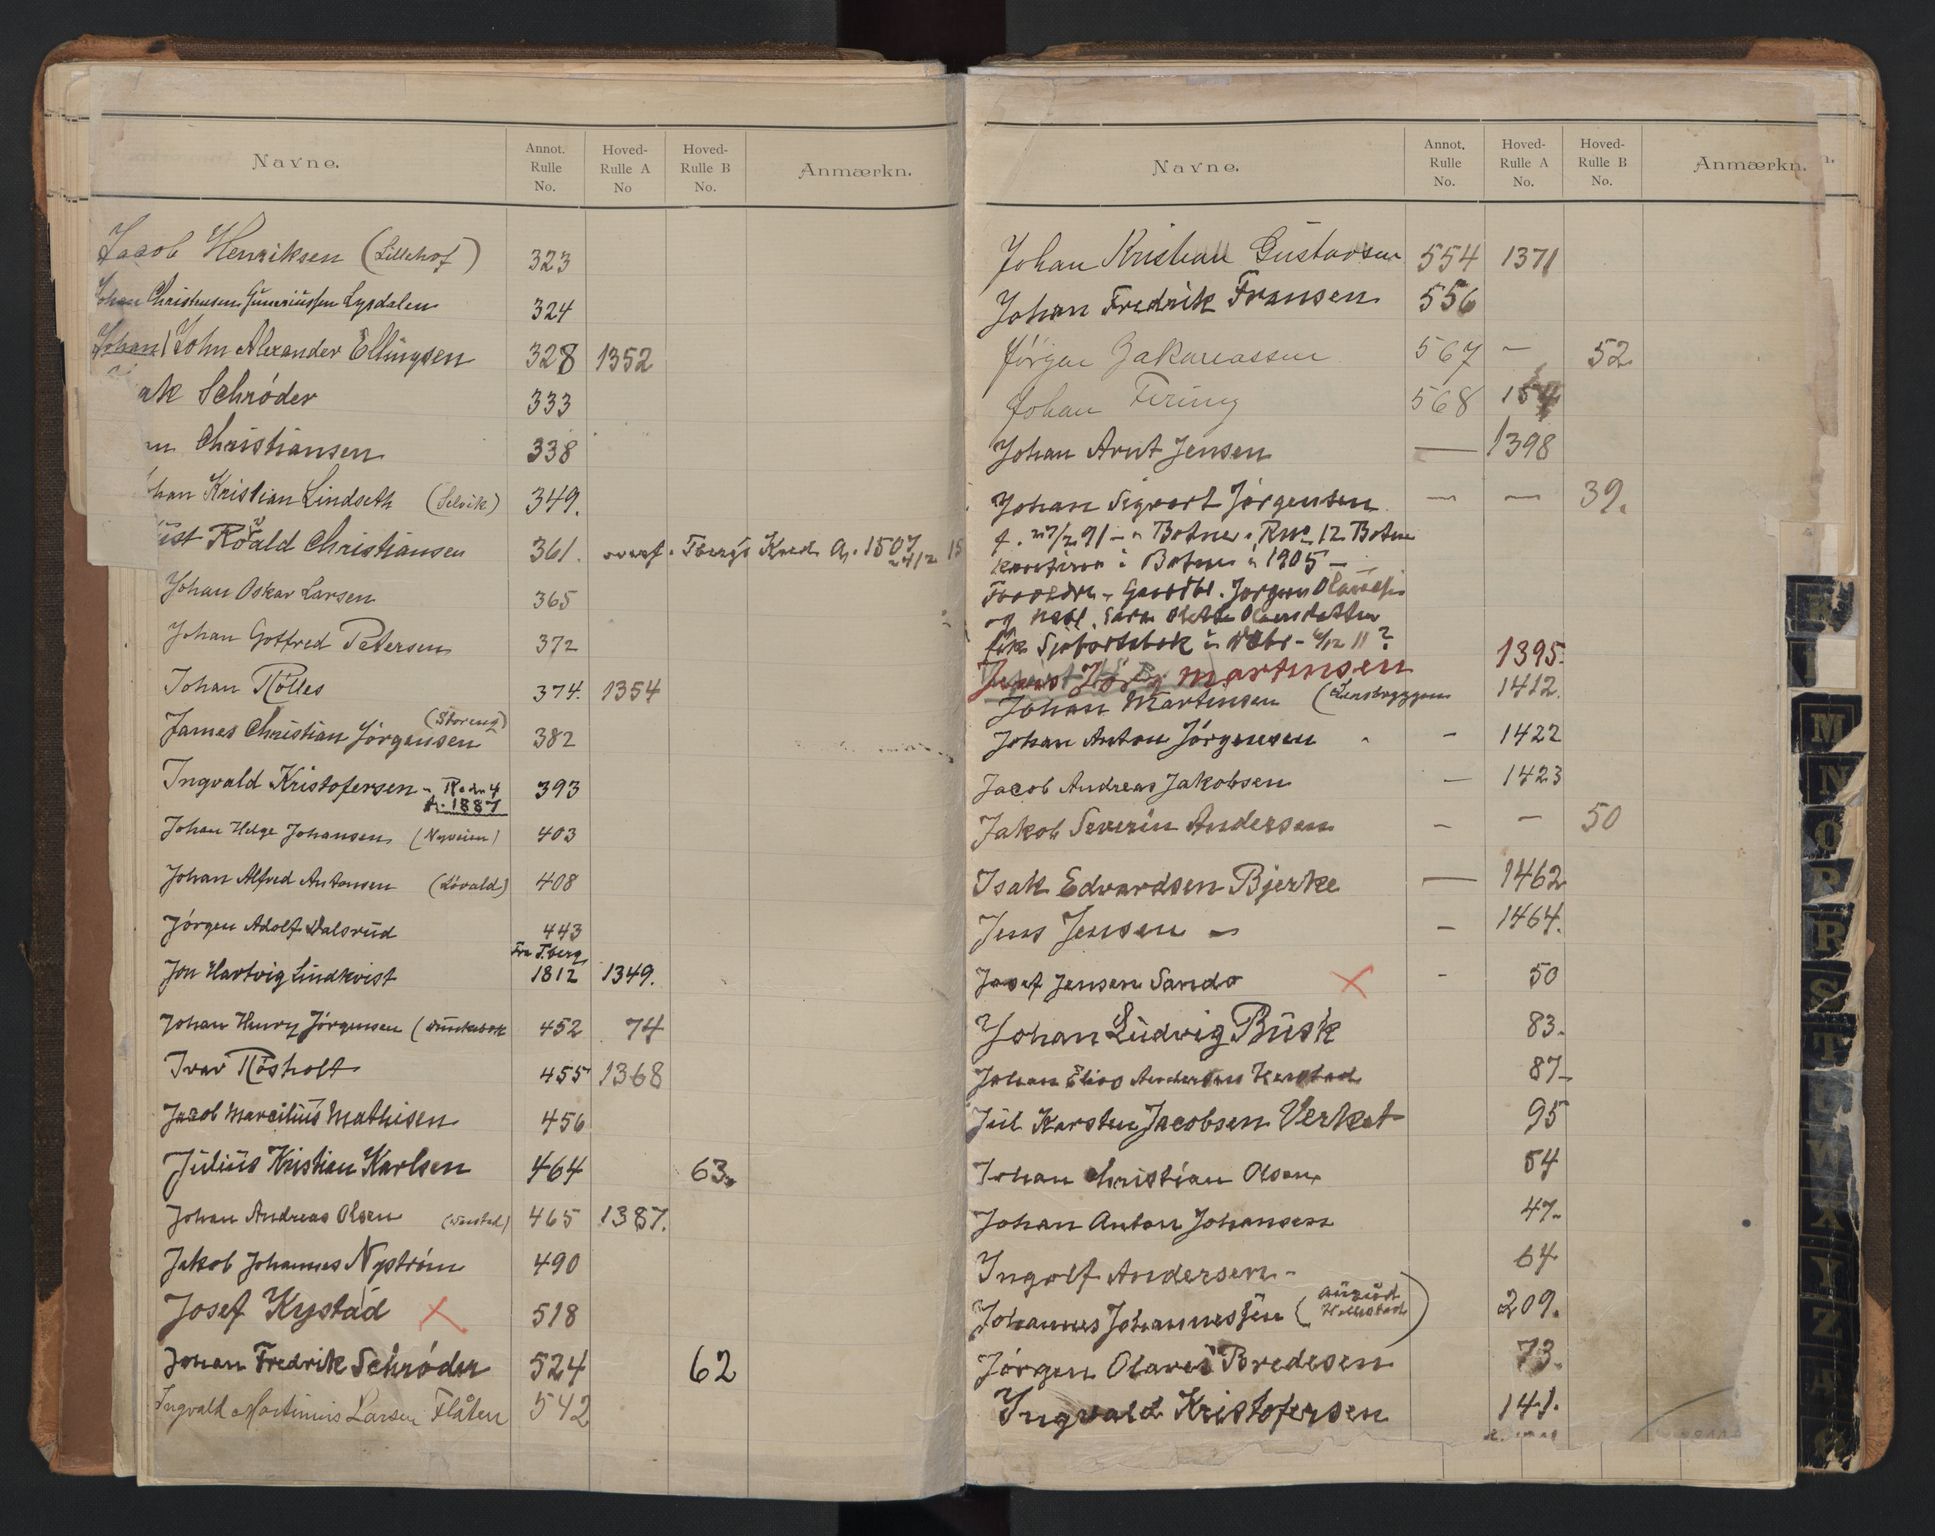 Navne. Annot. Rulle No. Hoved-Rulle A No Hoved-Rulle B No. Anmærkn.
Jacob Henriksen (Lillehof) 323
Johan Christensen Guneriussen Lysdalen 324
Johan John Alexander Ellingsen 328 1352
ak Schrøder 333
n Christiansen 338
han Kristian Lindseth (Selvik) 349.
Roald Christiansen 361. overf. Tbergs Kred. A. 1507
Johan Oskar Larsen 365
Johan Gotfred Petersen 372
Johan Rölles 374. 1354
(Storeng)
James Christian Jørgensen 382
Ingvald Kristofersen 393
A. 1887
Johan Helge Johansen (Nyveien) 403
Johan Alfred Antonsen (Løvald) 408
Jørgen Adolf Dalsrud 443
Fra Tberg
Jon Hartvig Lindkvist 1812 1349.
Johan Henry Jørgensen 452 74
Ivar Rösholt 455 1368
Jacob Marcilius Mathisen 456
Julius Kristian Karlsen 464 63.
Johan Andreas Olsen 465 1387.
Jakob Johannes Nystrøm 490
Josef Kystad X 518
Johan Fredrik Schrøder 524 62
Ingvald Martinius Larsen Flåten 542
Navne. Annot. Rulle No. Hoved-Rulle A No. Hoved-Rulle B No. Anmærkn.
Johan Kristian Gustavsen 554 1371
Johan Fredrik Fransen 556
Jørgen Zakariassen 567 – 52.
Johan Firing 568
Johan Arnt Jensen — 1398
Johan Sigvart Jørgensen — — 39.
f. 27/2 91 – i Botne. 12 Botne
i Botne i 1905 –
Foreldre. Jørgen
og
fik Sjøfartsbok i 11?
Jens Jörg Martinsen 1395.
Johan Martinsen 1412.
Johan Anton Jørgensen – 1422
Jacob Andreas Jakobsen — 1423
Jakob Severin Andersen – – 50
Isak Edvardsen Bjerke — 1462
Jens Jensen – – 1464.
Josef Jensen Sando X – 50
Johan Ludvig Busk 83.
Johan Elias Andersen 87
Jul Karsten Jacobsen Verket 95
Johan Christian Olsen 54
Johan Anton Johansen 47.
Ingolf Andersen – 64
Johannes Johannessen 209.
Jørgen Olaves Bredesen 73.
Ingvald Kristofersen 141.
M
N
O
P
R
S
T
U
W
X
Y
Z